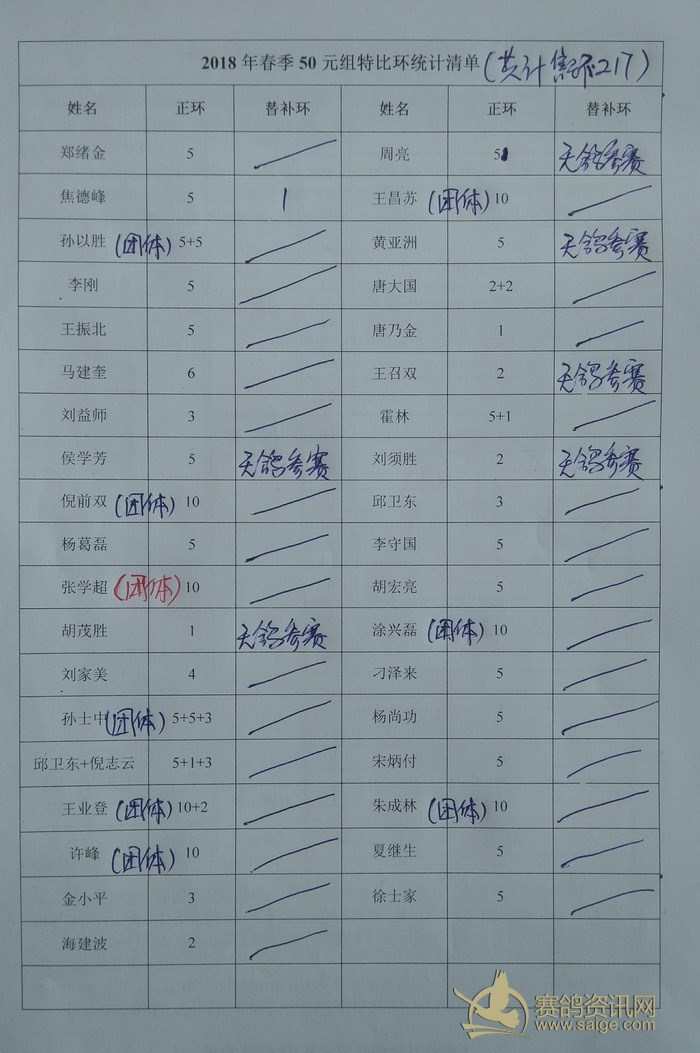 2018年春季50元组特比环统计清单(共计售环217)
姓名 正环 替补环 姓名 正环 替补环
郑绪金 5 周亮 5 无鸽参赛
焦德峰 5 1 王昌苏 (团体) 10
孙以胜 (团体) 5+5 黄亚洲 5 无鸽参赛
李刚 5 唐大国 2+2
王振北 5 唐乃金 1
马建奎 6 王召双 2 无鸽参赛
刘益师 3 霍林 5+1
侯学芳 5 无鸽参赛 刘须胜 2 无鸽参赛
倪前双 (团体) 10 邱卫东 3
杨葛磊 5 李守国 5
张学超 (团体) 10 胡宏亮 5
胡茂胜 1 无鸽参赛 涂兴磊 (团体) 10
刘家美 4 刁泽来 5
孙士中 (团体) 5+5+3 杨尚功 5
邱卫东+倪志云 5+1+3 宋炳付 5
王业登 (团体) 10+2 朱成林 (团体) 10
许峰 (团体) 10 夏继生 5
金小平 3 徐士家 5
海建波 2
赛鸽资讯网
www.saige.com